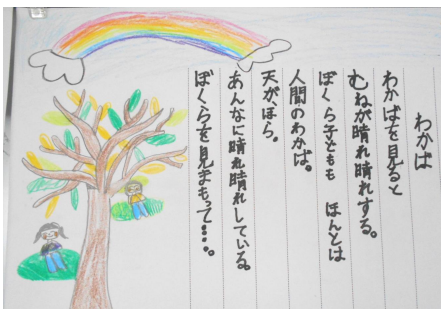 わかば
わかばを見ると
むねが晴れ晴れする。
ぼくら子どもも ほんとは
人間のわかば。
天が、ほら。
あんなに晴れ晴れしている。
ぼくらを見まもって……。